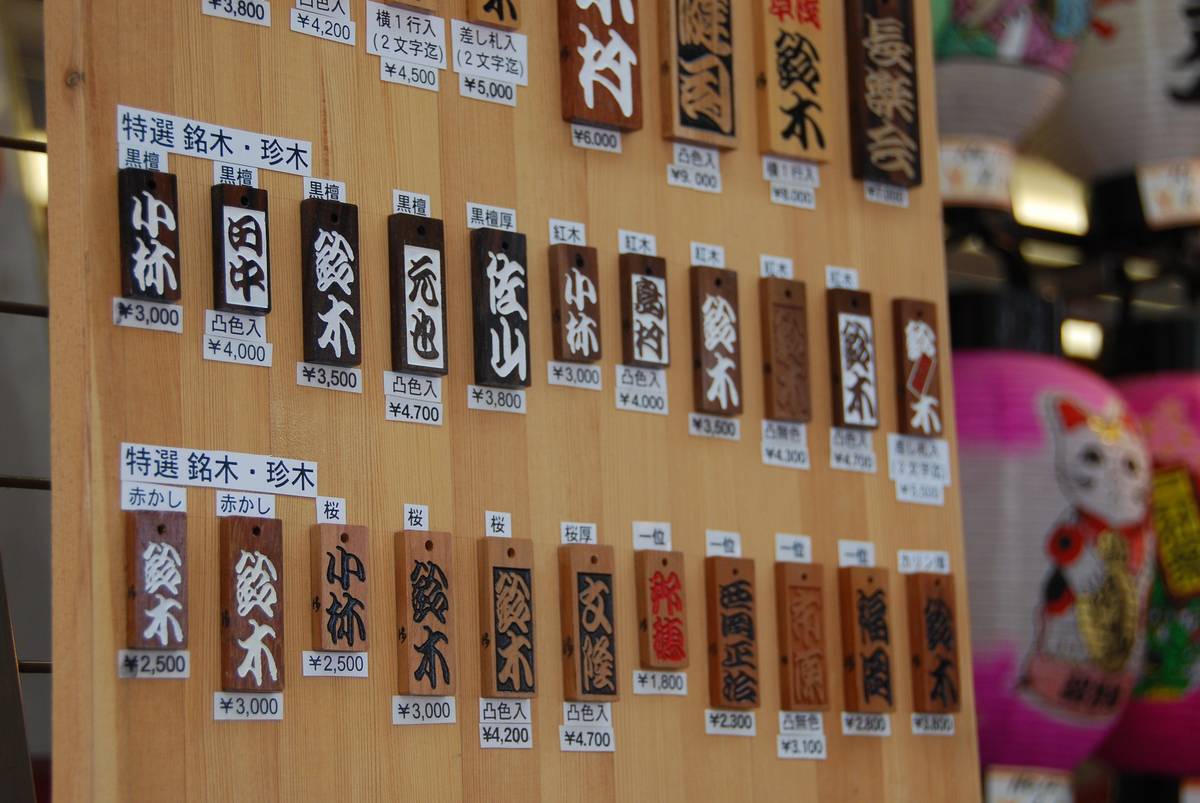 ¥3,800
凸色入
¥4,200
横1行入
(2文字迄)
¥4,500
差し札入
(2文字迄)
¥5,000
¥6,000
凸色入
¥9,000
鈴木
横1行入
¥8,000
長楽会
¥7,000
特選 銘木・珍木
黒檀
小林
¥3,000
黒檀
田中
凸色入
¥4,000
黒檀
鈴木
¥3,500
黒檀
元也
凸色入
¥4,700
黒檀厚
佐山
¥3,800
紅木
小林
¥3,000
紅木
島村
凸色入
¥4,000
紅木
鈴木
¥3,500
紅木
鈴木
凸無色
¥4,300
紅木
鈴木
凸色入
¥4,700
鈴木
差し札入
(2文字迄)
¥5,500
特選 銘木・珍木
赤かし
鈴木
¥2,500
赤かし
鈴木
¥3,000
桜
小林
¥2,500
桜
鈴木
¥3,000
桜
鈴木
凸色入
¥4,200
桜厚
文隆
凸色入
¥4,700
一位
¥1,800
一位
西岡正彦
¥2,300
一位
凸無色
¥3,100
一位
福岡
¥2,800
カリン厚
鈴木
¥3,800